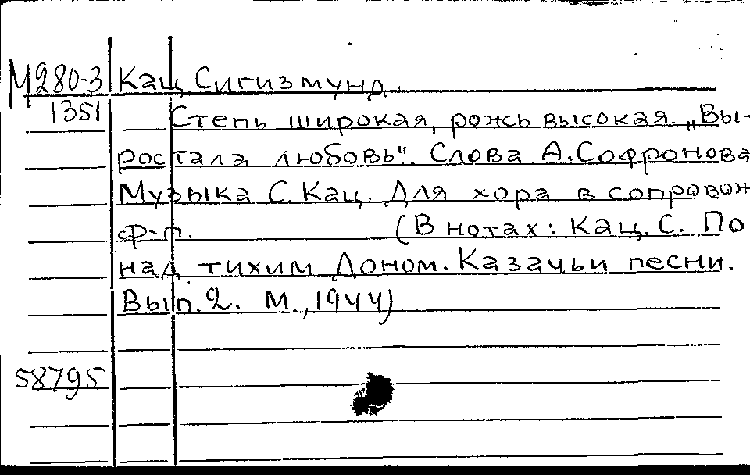 М280-3 Кац Сигизмунд.
1351 Степь широкая, рожь высокая. „Вы-
ростала любовь". Слова А. Софронова
Музыка С. Кац. Для хора в сопровож
ф-п. (В нотах: Кац. С. По
над тихим Доном. Казачьи песни.
Вып. 2. М., 1944)
58795